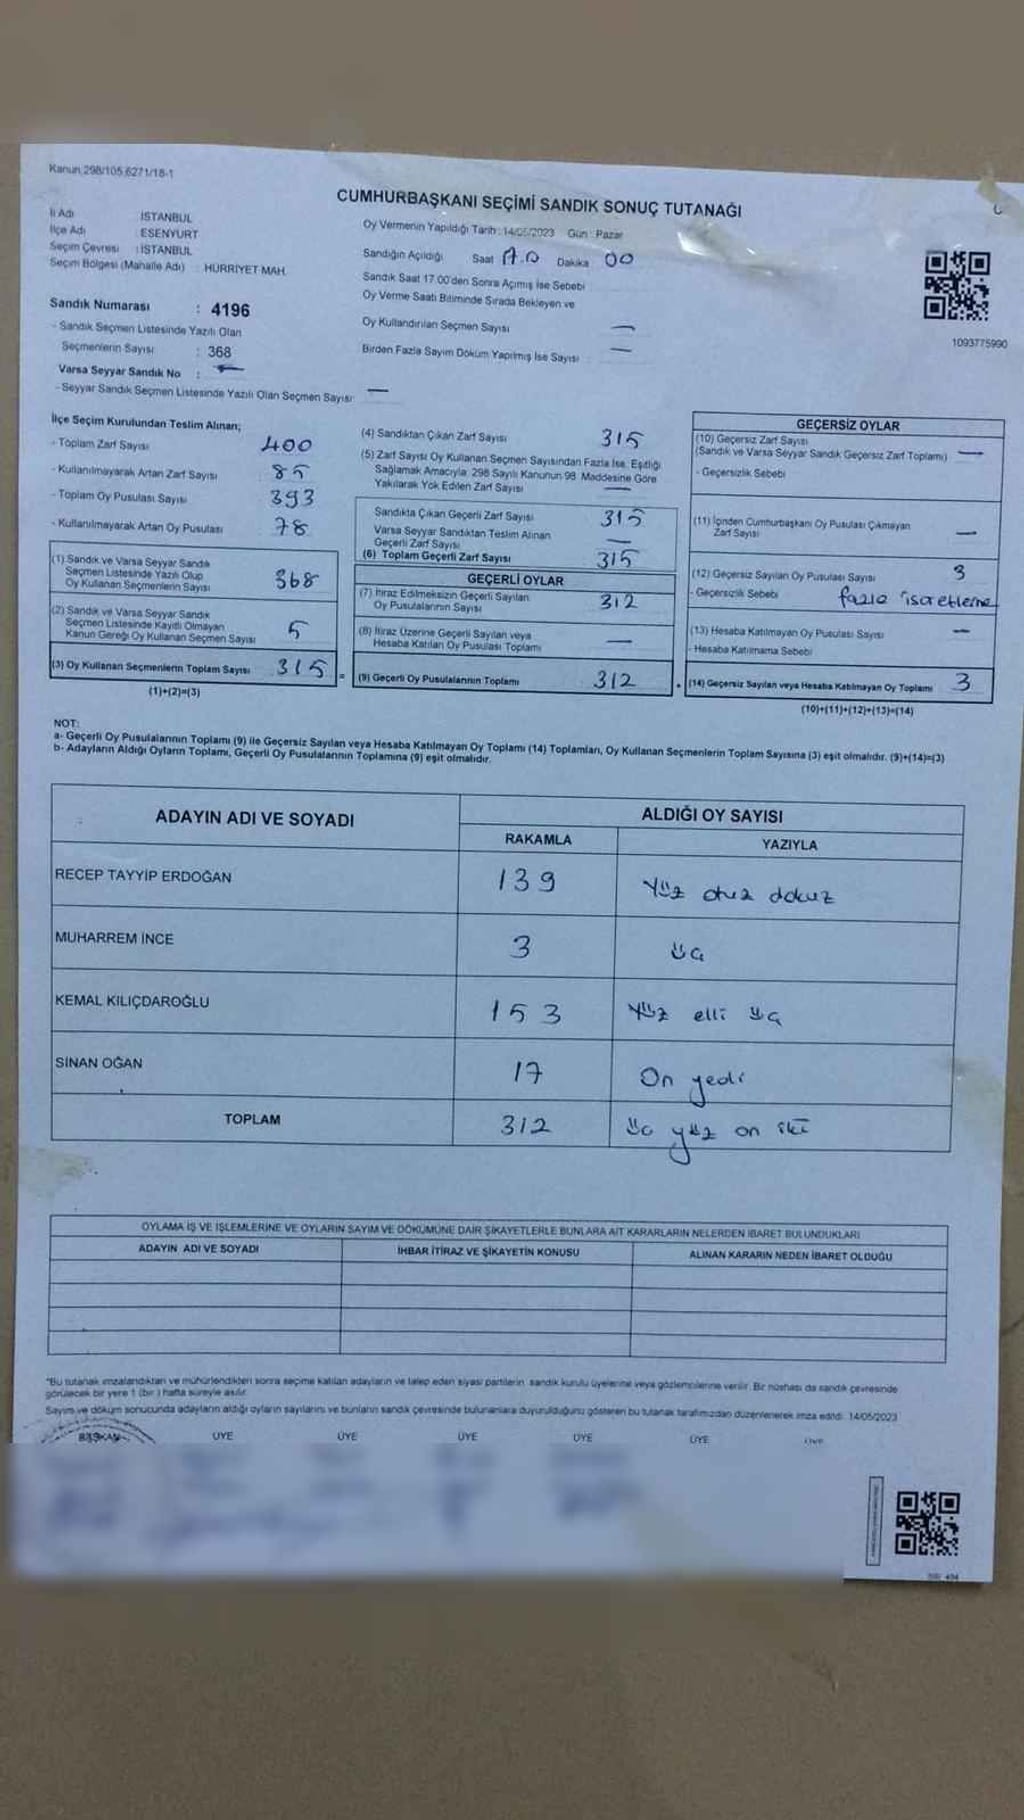 Kanun 298/105 6271/18-1
CUMHURBAŞKANI SEÇİMİ SANDIK SONUÇ TUTANAĞI
İl Adı İSTANBUL
İlçe Adı ESENYURT
Seçim Çevresi : İSTANBUL
Seçim Bölgesi (Mahalle Adı) : HÜRRİYET MAH.
Oy Vermenin Yapıldığı Tarih : 14/05/2023 Gün : Pazar
Sandığın Açıldığı Saat Dakika 00
Sandık Saat 17.00'den Sonra Açılmış İse Sebebi
Oy Verme Saati Bitiminde Sırada Bekleyen ve
Oy Kullandırılan Seçmen Sayısı —
Birden Fazla Sayım Döküm Yapılmış İse Sayısı : —
1093775990
Sandık Numarası : 4196
- Sandık Seçmen Listesinde Yazılı Olan
Seçmenlerin Sayısı : 368
Varsa Seyyar Sandık No : —
- Seyyar Sandık Seçmen Listesinde Yazılı Olan Seçmen Sayısı: —
İlçe Seçim Kurulundan Teslim Alınan;
- Toplam Zarf Sayısı 400
- Kullanılmayarak Artan Zarf Sayısı 85
- Toplam Oy Pusulası Sayısı 393
- Kullanılmayarak Artan Oy Pusulası 78
(1) Sandık ve Varsa Seyyar Sandık
Seçmen Listesinde Yazılı Olup
Oy Kullanan Seçmenlerin Sayısı 368
(2) Sandık ve Varsa Seyyar Sandık
Seçmen Listesinde Kayıtlı Olmayan
Kanun Gereği Oy Kullanan Seçmen Sayısı 5
(3) Oy Kullanan Seçmenlerin Toplam Sayısı 315 =
(1)+(2)=(3)
(4) Sandıktan Çıkan Zarf Sayısı 315
(5) Zarf Sayısı Oy Kullanan Seçmen Sayısından Fazla İse, Eşitliği
Sağlamak Amacıyla, 298 Sayılı Kanunun 98. Maddesine Göre
Yakılarak Yok Edilen Zarf Sayısı —
Sandıkta Çıkan Geçerli Zarf Sayısı 315
Varsa Seyyar Sandıktan Teslim Alınan
Geçerli Zarf Sayısı —
(6) Toplam Geçerli Zarf Sayısı 315
GEÇERLİ OYLAR
(7) İtiraz Edilmeksizin Geçerli Sayılan
Oy Pusulalarının Sayısı 312
(8) İtiraz Üzerine Geçerli Sayılan veya
Hesaba Katılan Oy Pusulası Toplamı —
(9) Geçerli Oy Pusulalarının Toplamı 312
GEÇERSİZ OYLAR
(10) Geçersiz Zarf Sayısı
(Sandık ve Varsa Seyyar Sandık Geçersiz Zarf Toplamı) —
- Geçersizlik Sebebi
(11) İçinden Cumhurbaşkanı Oy Pusulası Çıkmayan
Zarf Sayısı —
(12) Geçersiz Sayılan Oy Pusulası Sayısı 3
- Geçersizlik Sebebi fazla isaretleme
(13) Hesaba Katılmayan Oy Pusulası Sayısı —
- Hesaba Katılmama Sebebi
(14) Geçersiz Sayılan veya Hesaba Katılmayan Oy Toplamı 3
(10)+(11)+(12)+(13)=(14)
NOT:
a- Geçerli Oy Pusulalarının Toplamı (9) ile Geçersiz Sayılan veya Hesaba Katılmayan Oy Toplamı (14) Toplamları, Oy Kullanan Seçmenlerin Toplam Sayısına (3) eşit olmalıdır. (9)+(14)=(3)
b- Adayların Aldığı Oyların Toplamı, Geçerli Oy Pusulalarının Toplamına (9) eşit olmalıdır.
ADAYIN ADI VE SOYADI ALDIĞI OY SAYISI
RAKAMLA YAZIYLA
RECEP TAYYİP ERDOĞAN 139 Yüz otuz dokuz
MUHARREM İNCE 3 üç
KEMAL KILIÇDAROĞLU 153 Yüz elli üç
SİNAN OĞAN 17 On yedi
TOPLAM 312 üç yüz on iki
OYLAMA İŞ VE İŞLEMLERİNE VE OYLARIN SAYIM VE DÖKÜMÜNE DAİR ŞİKAYETLERLE BUNLARA AİT KARARLARIN NELERDEN İBARET BULUNDUKLARI
ADAYIN ADI VE SOYADI İHBAR İTİRAZ VE ŞİKAYETİN KONUSU ALINAN KARARIN NEDEN İBARET OLDUĞU
*Bu tutanak imzalandıktan ve mühürlendikten sonra seçime katılan adayların ve talep eden siyasi partilerin sandık kurulu üyelerine veya gözlemcilerine verilir. Bir nüshası da sandık çevresinde
görülecek bir yere 1 (bir ) hafta süreyle asılır.
Sayım ve döküm sonucunda adayların aldığı oyların sayılarını ve bunların sandık çevresinde bulunanlara duyurulduğunu gösteren bu tutanak tarafımızdan düzenlenerek imza edildi. 14/05/2023
BAŞKAN ÜYE ÜYE ÜYE ÜYE ÜYE ÜYE